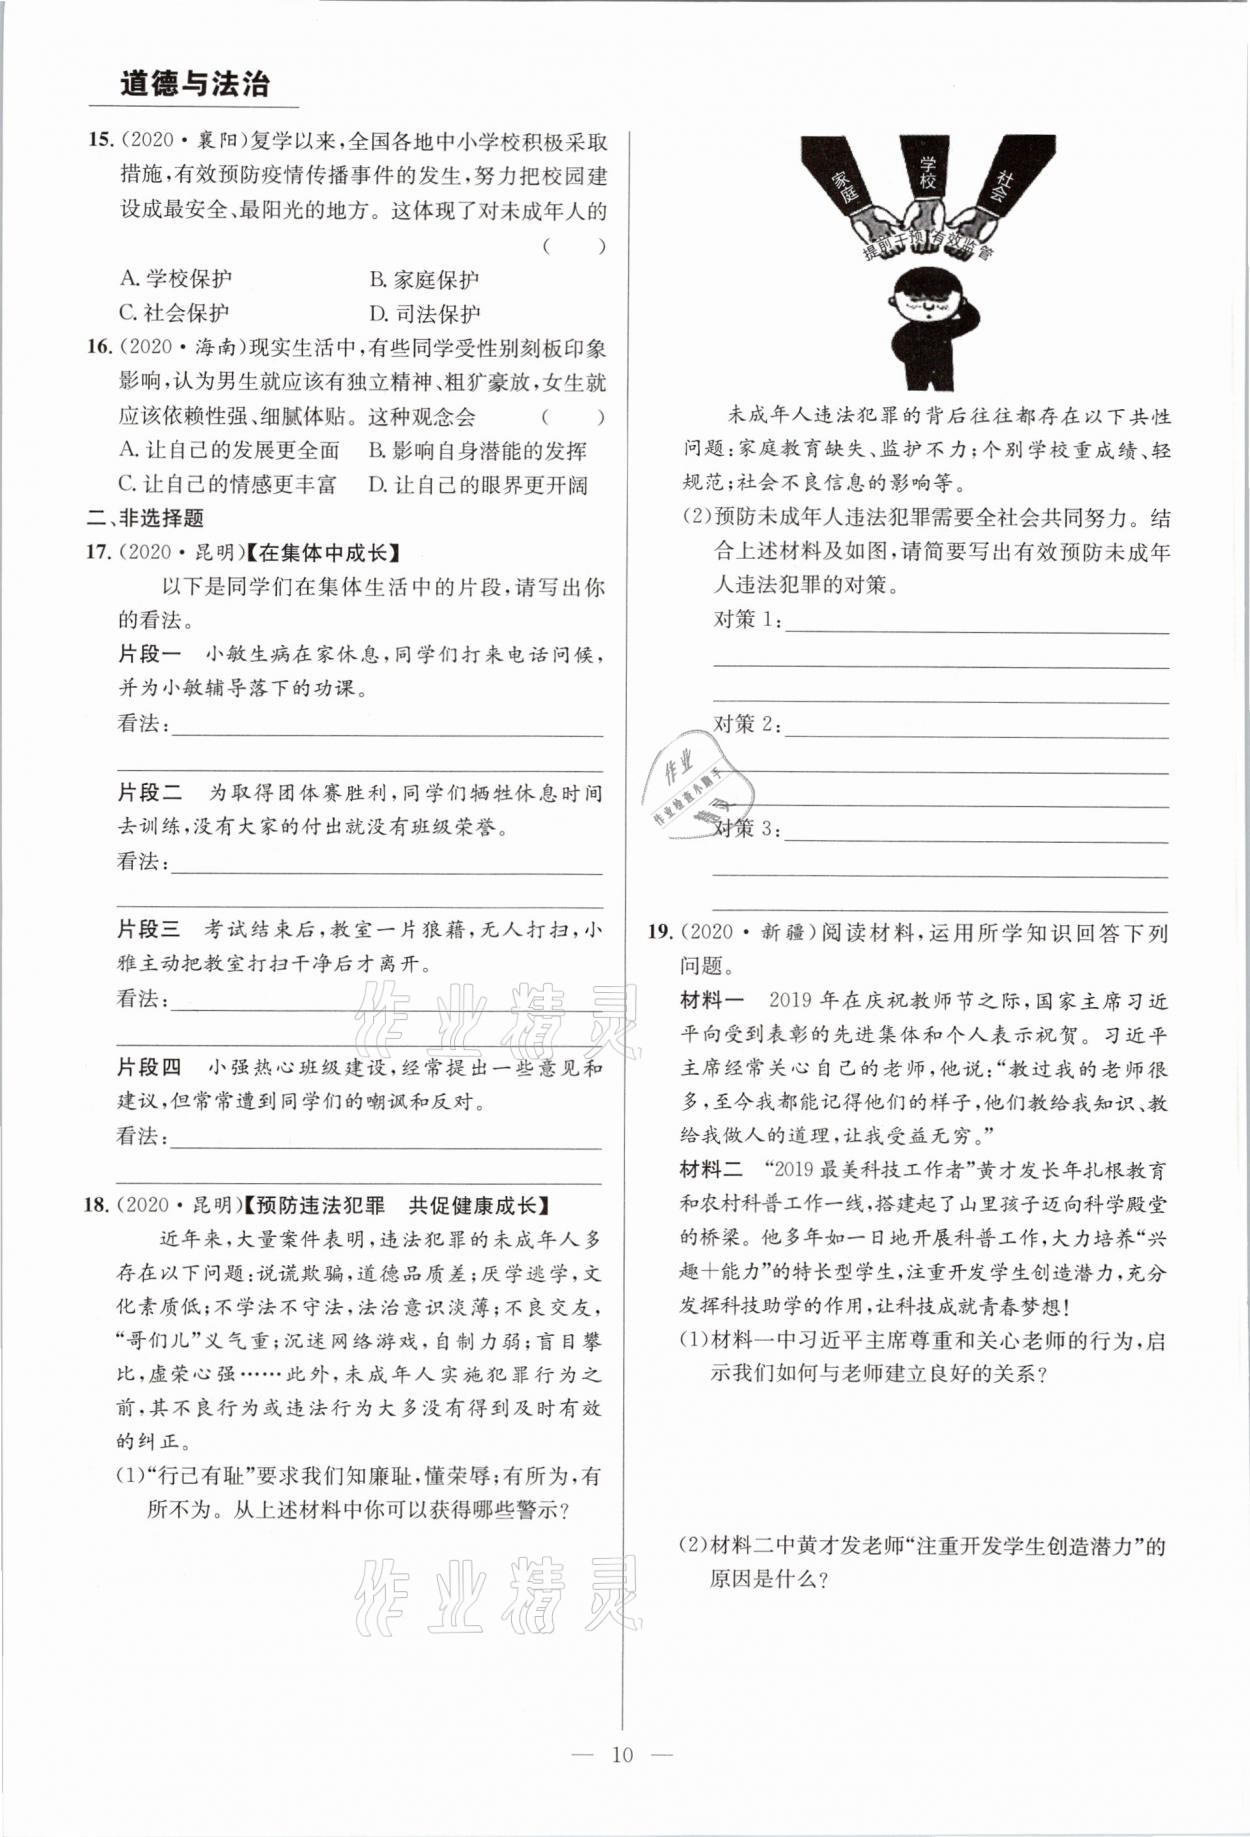 道德与法治
15.(2020·襄阳)复学以来,全国各地中小学校积极采取
措施,有效预防疫情传播事件的发生,努力把校园建
设成最安全、最阳光的地方。这体现了对未成年人的
(　　)
A.学校保护　　B.家庭保护
C.社会保护　　D.司法保护
16.(2020·海南)现实生活中,有些同学受性别刻板印象
影响,认为男生就应该有独立精神、粗犷豪放,女生就
应该依赖性强、细腻体贴。这种观念会　(　　)
A.让自己的发展更全面　B.影响自身潜能的发挥
C.让自己的情感更丰富　D.让自己的眼界更开阔
二、非选择题
17.(2020·昆明)【在集体中成长】
以下是同学们在集体生活中的片段,请写出你
的看法。
片段一　小敏生病在家休息,同学们打来电话问候,
并为小敏辅导落下的功课。
看法:
片段二　为取得团体赛胜利,同学们牺牲休息时间
去训练,没有大家的付出就没有班级荣誉。
看法:
片段三　考试结束后,教室一片狼藉,无人打扫,小
雅主动把教室打扫干净后才离开。
看法:
片段四　小强热心班级建设,经常提出一些意见和
建议,但常常遭到同学们的嘲讽和反对。
看法:
18.(2020·昆明)【预防违法犯罪　共促健康成长】
近年来,大量案件表明,违法犯罪的未成年人多
存在以下问题:说谎欺骗,道德品质差;厌学逃学,文
化素质低;不学法不守法,法治意识淡薄;不良交友,
“哥们儿”义气重;沉迷网络游戏,自制力弱;盲目攀
比,虚荣心强……此外,未成年人实施犯罪行为之
前,其不良行为或违法行为大多没有得到及时有效
的纠正。
(1)“行己有耻”要求我们知廉耻,懂荣辱;有所为,有
所不为。从上述材料中你可以获得哪些警示?
家庭
学校
社会
提前干预 有效监管
未成年人违法犯罪的背后往往都存在以下共性
问题:家庭教育缺失、监护不力;个别学校重成绩、轻
规范;社会不良信息的影响等。
(2)预防未成年人违法犯罪需要全社会共同努力。结
合上述材料及如图,请简要写出有效预防未成年
人违法犯罪的对策。
对策1:
对策2:
对策3:
19.(2020·新疆)阅读材料,运用所学知识回答下列
问题。
材料一　2019年在庆祝教师节之际,国家主席习近
平向受到表彰的先进集体和个人表示祝贺。习近平
主席经常关心自己的老师,他说:“教过我的老师很
多,至今我都能记得他们的样子,他们教给我知识、教
给我做人的道理,让我受益无穷。”
材料二　“2019最美科技工作者”黄才发长年扎根教育
和农村科普工作一线,搭建起了山里孩子迈向科学殿堂
的桥梁。他多年如一日地开展科普工作,大力培养“兴
趣+能力”的特长型学生,注重开发学生创造潜力,充分
发挥科技助学的作用,让科技成就青春梦想!
(1)材料一中习近平主席尊重和关心老师的行为,启
示我们如何与老师建立良好的关系?
(2)材料二中黄才发老师“注重开发学生创造潜力”的
原因是什么?
作业
作业检查小助手
精灵
作业精灵
作业精灵
— 10 —